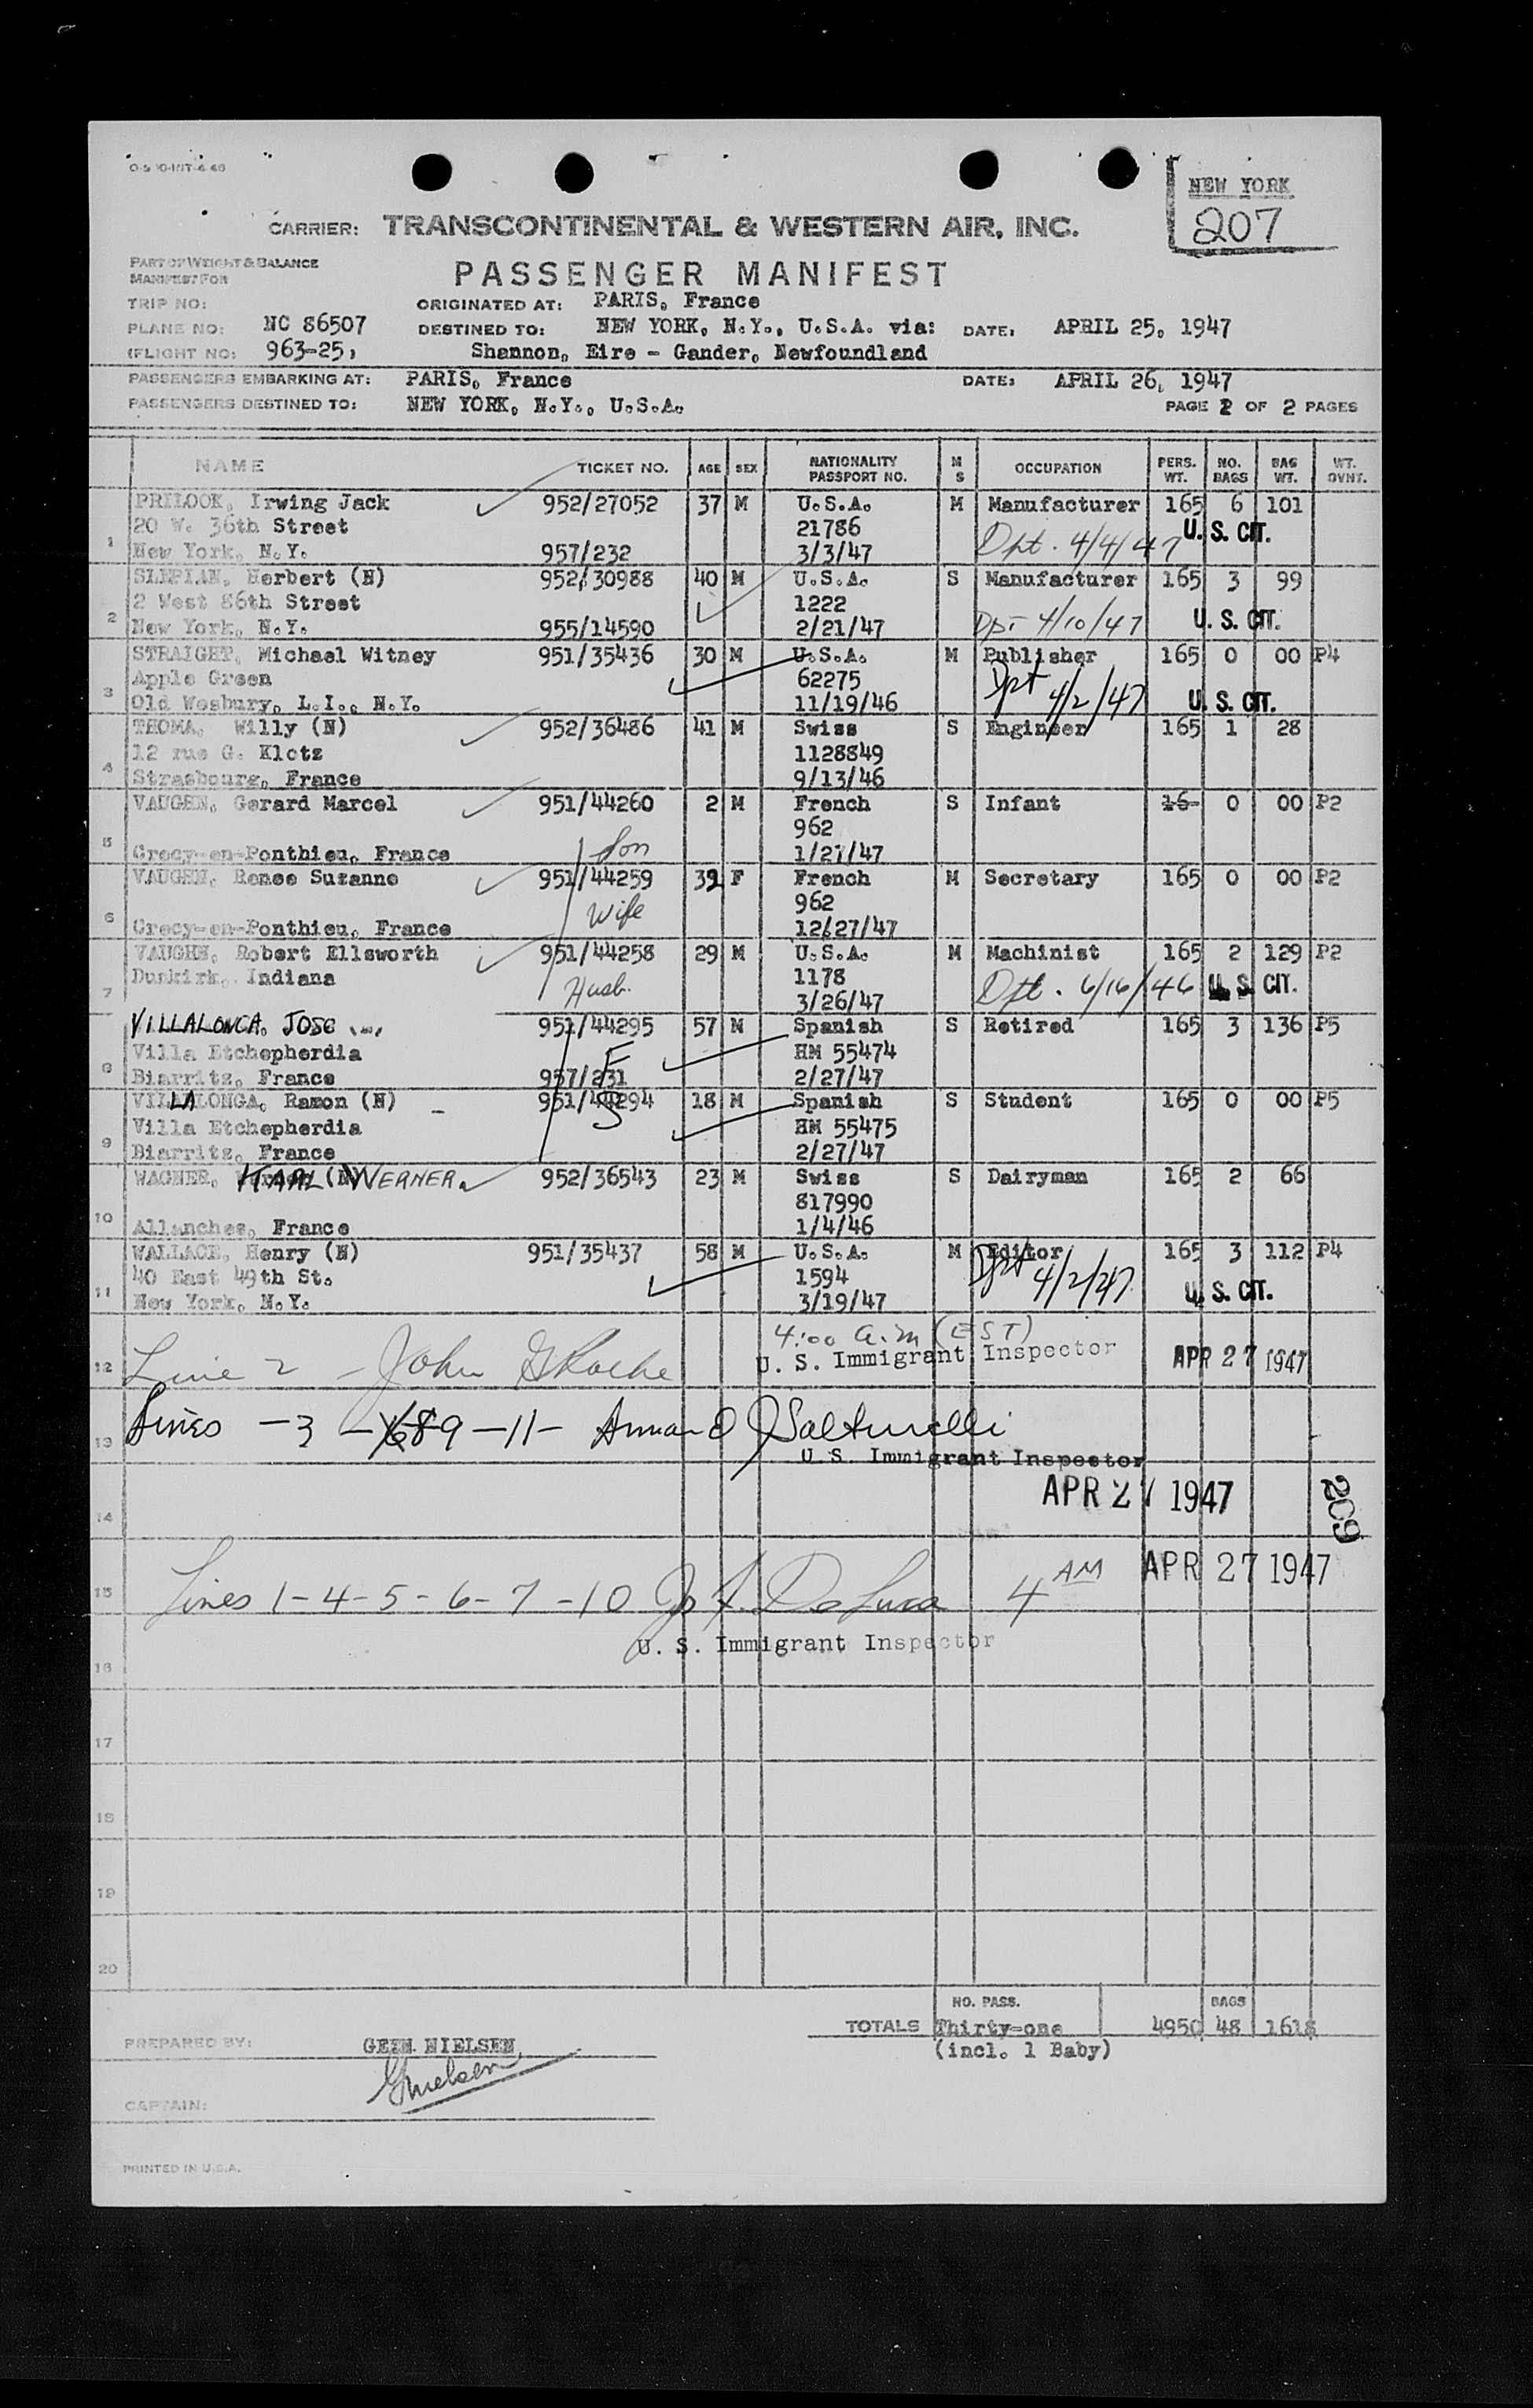 O-500-INT-4-46
NEW YORK
207
CARRIER: TRANSCONTINENTAL & WESTERN AIR, INC.
PART OF WEIGHT & BALANCE
MANIFEST FOR
PASSENGER MANIFEST
TRIP NO: ORIGINATED AT: PARIS, France
PLANE NO: NC 86507 DESTINED TO: NEW YORK, N.Y., U.S.A. via: DATE: APRIL 25, 1947
(FLIGHT NO: 963-25, Shannon, Eire - Gander, Newfoundland
PASSENGERS EMBARKING AT: PARIS, France DATE: APRIL 26, 1947
PASSENGERS DESTINED TO: NEW YORK, N.Y., U.S.A. PAGE 2 OF 2 PAGES
NAME TICKET NO. AGE SEX NATIONALITY PASSPORT NO. M S OCCUPATION PERS. WT. NO. BAGS BAG WT. WT. OVNT.
PRILOOK, Irwing Jack 952/27052 37 M U.S.A. M Manufacturer 165 6 101
20 W. 36th Street 21786 U. S. CIT.
1 New York, N.Y. 957/232 3/3/47 Dpt. 4/4/47
SLEPIAN, Herbert (N) 952/30988 40 M U.S.A. S Manufacturer 165 3 99
2 West 86th Street 1222
2 New York, N.Y. 955/14590 2/21/47 Dpt 4/10/47 U. S. CIT.
STRAIGHT, Michael Witney 951/35436 30 M U.S.A. M Publisher 165 0 00 P4
Apple Green 62275
3 Old Wesbury, L.I., N.Y. 11/19/46 Dpt 4/2/47 U. S. CIT.
THOMA, Willy (N) 952/36486 41 M Swiss S Engineer 165 1 28
12 rue G. Klotz 1128849
4 Strasbourg, France 9/13/46
VAUGHN, Gerard Marcel 951/44260 2 M French S Infant 16 0 00 P2
962
5 Crecy-en-Ponthieu, France Son 1/27/47
VAUGHN, Renee Suzanne 951/44259 39 F French M Secretary 165 0 00 P2
962
6 Crecy-en-Ponthieu, France Wife 12/27/47
VAUGHN, Robert Ellsworth 951/44258 29 M U.S.A. M Machinist 165 2 129 P2
Dunkirk, Indiana 1178
7 Husb. 3/26/47 Dpt. 6/16/46 U. S. CIT.
VILLALONGA, JOSE 951/44295 57 M Spanish S Retired 165 3 136 P5
Villa Etchepherdia F HM 55474
8 Biarritz, France 957/231 2/27/47
VILLALONGA, Ramon (N) 951/44294 18 M Spanish S Student 165 0 00 P5
Villa Etchepherdia S HM 55475
9 Biarritz, France 2/27/47
WAGNER, KARL WERNER 952/36543 23 M Swiss S Dairyman 165 2 66
817990
10 Allanches, France 1/4/46
WALLACE, Henry (N) 951/35437 58 M U.S.A. M Editor 165 3 112 P4
40 East 49th St. 1594
11 New York, N.Y. 3/19/47 Dpt 4/2/47 U. S. CIT.
4:00 a.m (EST)
12 Line 2 - John G Roche U. S. Immigrant Inspector APR 27 1947
13 Lines - 3 - 89 - 11 -
U. S. Immigrant Inspector
APR 27 1947
14
209
15 Lines 1-4-5-6-7-10 4 AM APR 27 1947
U. S. Immigrant Inspector
16
17
18
19
20
NO. PASS. BAGS
TOTALS Thirty-one 4950 48 1618
(incl. 1 Baby)
PREPARED BY: NIELSEN
GNielsen
CAPTAIN:
PRINTED IN U.S.A.